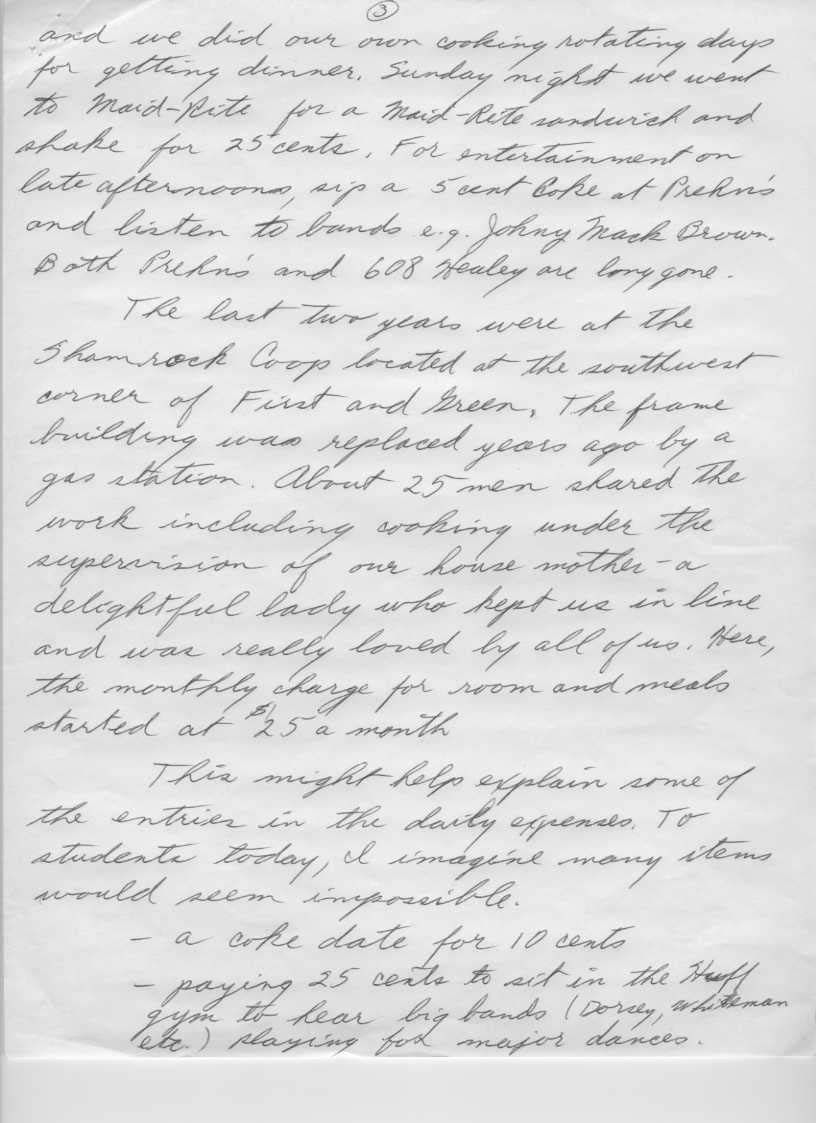 3
and we did our own cooking rotating days
for getting dinner. Sunday night we went
to Maid-Rite for a Maid-Rite sandwich and
shake for 25 cents. For entertainment on
late afternoons, sip a 5 cent Coke at Prehn's
and listen to bands e.g. Johny Mack Brown.
Both Prehn's and 608 Healey are long gone.
The last two years were at the
Shamrock Coop located at the southwest
corner of First and Green. The frame
building was replaced years ago by a
gas station. About 25 men shared the
work including cooking under the
supervision of our house mother - a
delightful lady who kept us in line
and was really loved by all of us. Here,
the monthly charge for room and meals
started at $25 a month
This might help explain some of
the entries in the daily expenses. To
students today, I imagine many items
would seem impossible.
- a coke date for 10 cents
- paying 25 cents to sit in the Huff
gym to hear big bands (Dorsey, Whiteman
etc.) playing for major dances.